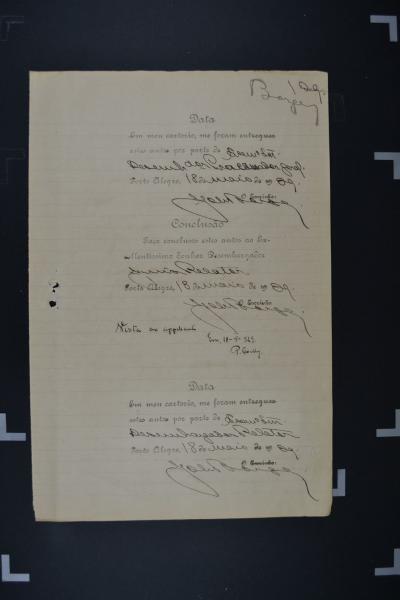 129
Borges
Data
Em meu cartorio, me foram entregues
estes autos por parte do Exmo Snr.
Desembdor Procurador Geral
Porto Alegre, 18 de Maio de 1909.
O Escrivão:
Conclusão
Faço conclusos estes autos ao Ex-
cellentissimo Senhor Desembargador
Relator
Porto Alegre, 18 de Maio de 1909.
O Escrivão
Vista ao
Em, 18-5-909.
Data
Em meu cartorio, me foram entregues
estes autos por parte do Exmo Snr.
Desembargador Relator
Porto Alegre, 18 de Maio de 1909.
O Escrivão: